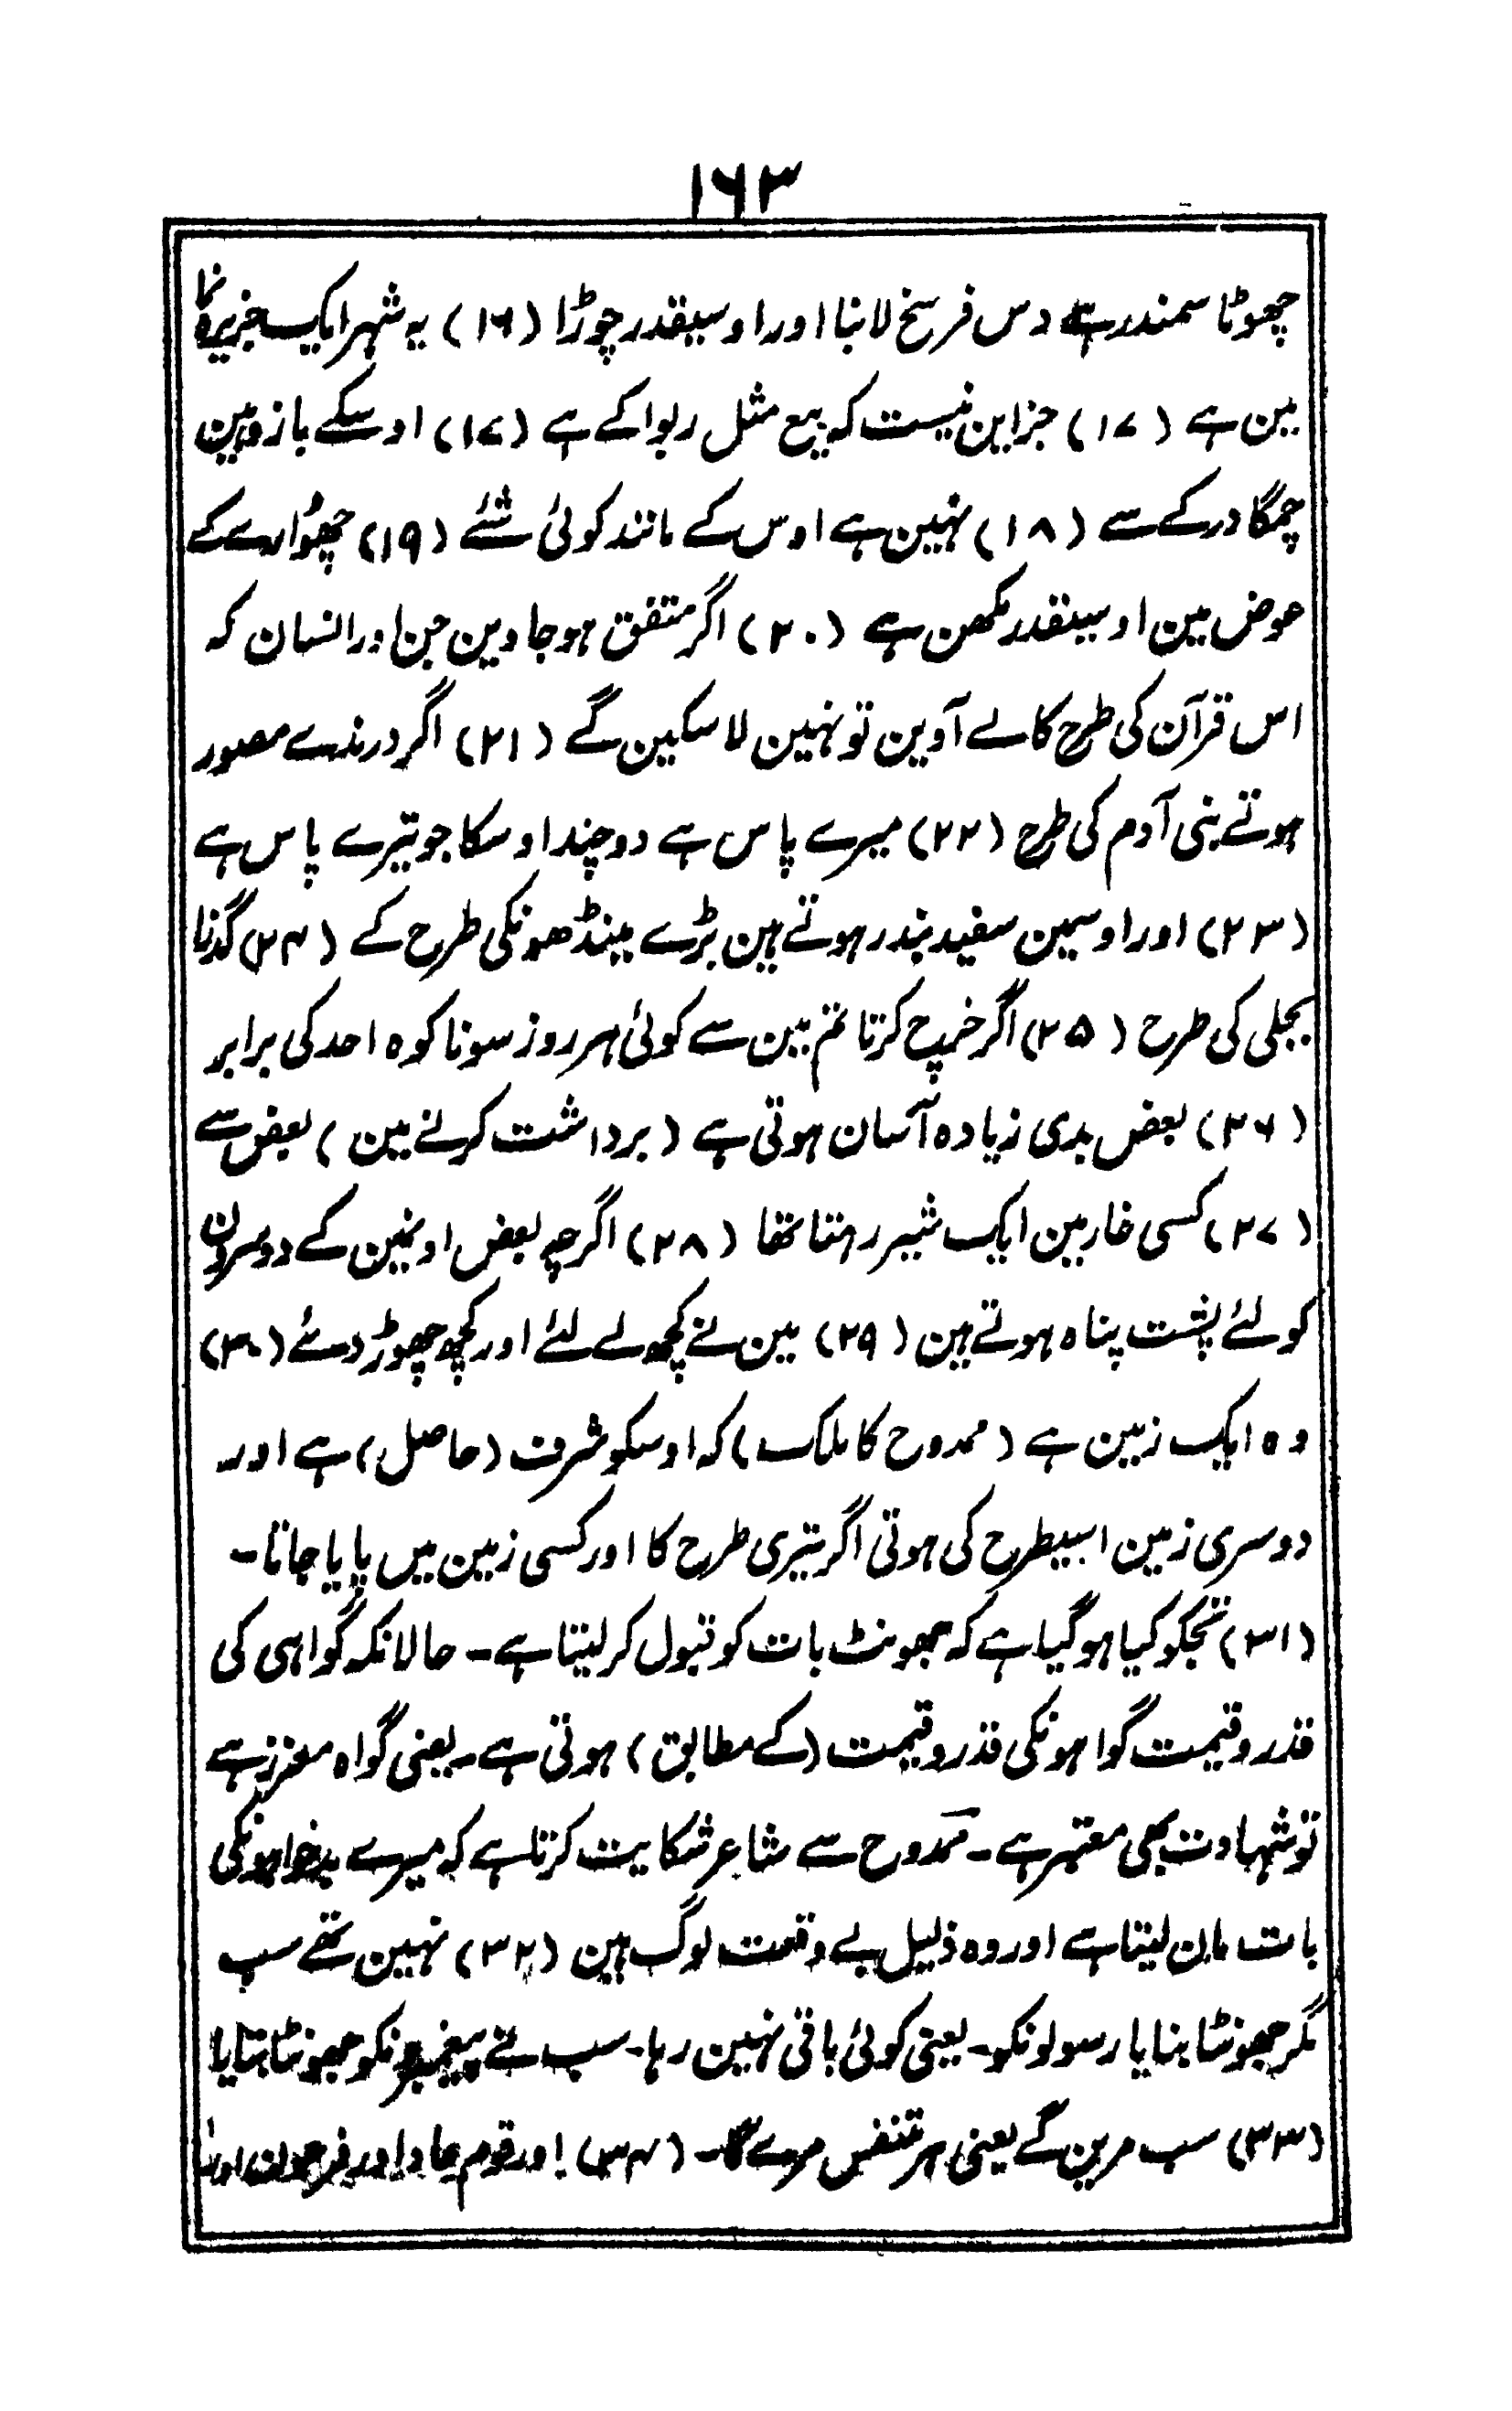 ۱۶۳
چھوٹا سمندر ہے دس فرسخ لانبا اور اوسیقدر چوڑا (۱۶) یہ شہر ایک جزیرہ نما
مین ہے (۱۷) جز این نیست کہ بیع مثل ربوا کے ہے (۱۷) اوسکے بازو ہین
چمگادر کے سے (۱۸) نہین ہے اوس کے مانند کوئی شئے (۱۹) چھوارے کے
عوض مین اوسیقدر مکھن ہے (۲۰) اگر متفق ہوجاوین جن اور انسان کہ
اس قرآن کی طرح کا لے آوین تو نہین لاسکین گے (۲۱) اگر درندے مصور
ہوتے بنی آدم کی طرح (۲۲) میرے پاس ہے دوچند اوسکا جو تیرے پاس ہے
(۲۳) اور اوسمین سفید بندر ہوتے ہین بڑے مینڈھونکی طرح کے (۲۴) گذرنا
بجلی کی طرح (۲۵) اگر خرچ کرتا تم مین سے کوئی ہر روز سونا کوہ احد کی برابر
(۲۶) بعض بدی زیادہ آسان ہوتی ہے (برداشت کرنے مین) بعض سے
(۲۷) کسی غار مین ایک شیر رہتا تھا (۲۸) اگرچہ بعض اونمین کے دوسرون
کولئے پشت پناہ ہوتے ہین (۲۹) مین نے کچھ لے لئے اور کچھ چھوڑ دئے (۳۰)
وہ ایک زمین ہے (ممدوح کا ملک) کہ اوسکو شرف (حاصل) ہے اور
دوسری زمین اسیطرح کی ہوتی اگر تیری طرح کا اور کسی زمین میں پایا جاتا۔
(۳۱) تجکو کیا ہوگیا ہے کہ جھونٹ بات کو قبول کرلیتا ہے۔ حالانکہ گواہی کی
قدر و قیمت گواہونکی قدر و قیمت (کے مطابق) ہوتی ہے۔ یعنی گواہ معزز ہے
تو شہادت بھی معتبر ہے۔ ممدوح سے شاعر شکایت کرتا ہے کہ میرے بدخواہونکی
بات مان لیتا ہے اور وہ ذلیل بے وقعت لوگ ہین (۳۲) نہین تھے سب
مگر جھونٹا بنایا رسولونکو۔ یعنی کوئی باقی نہین رہا۔ سب نے پیغمبرونکو جھونٹا بتایا
(۳۳) سب مرین گے یعنی ہر متنفس مرے گا۔ (۳۴) اور قوم عاد اور فرعون اور